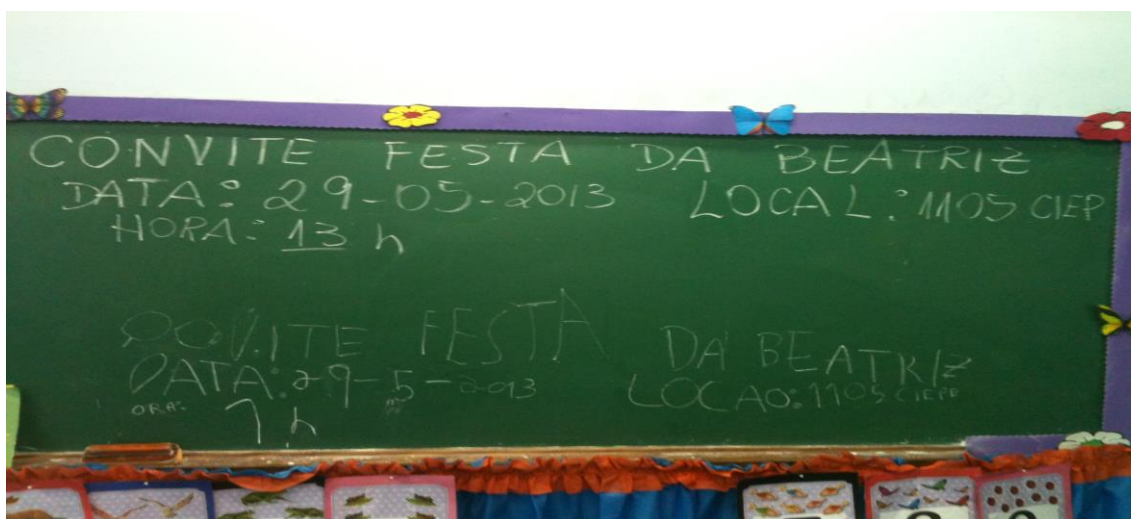 CONVITE FESTA DA BEATRIZ
DATA: 29-05-2013 LOCAL: 1105 CIEP
HORA: 13 h
FESTA DA BEATRIZ
DATA: 29-5-2013 LOCAO: 1105 CIEPP
ORA: 7 h